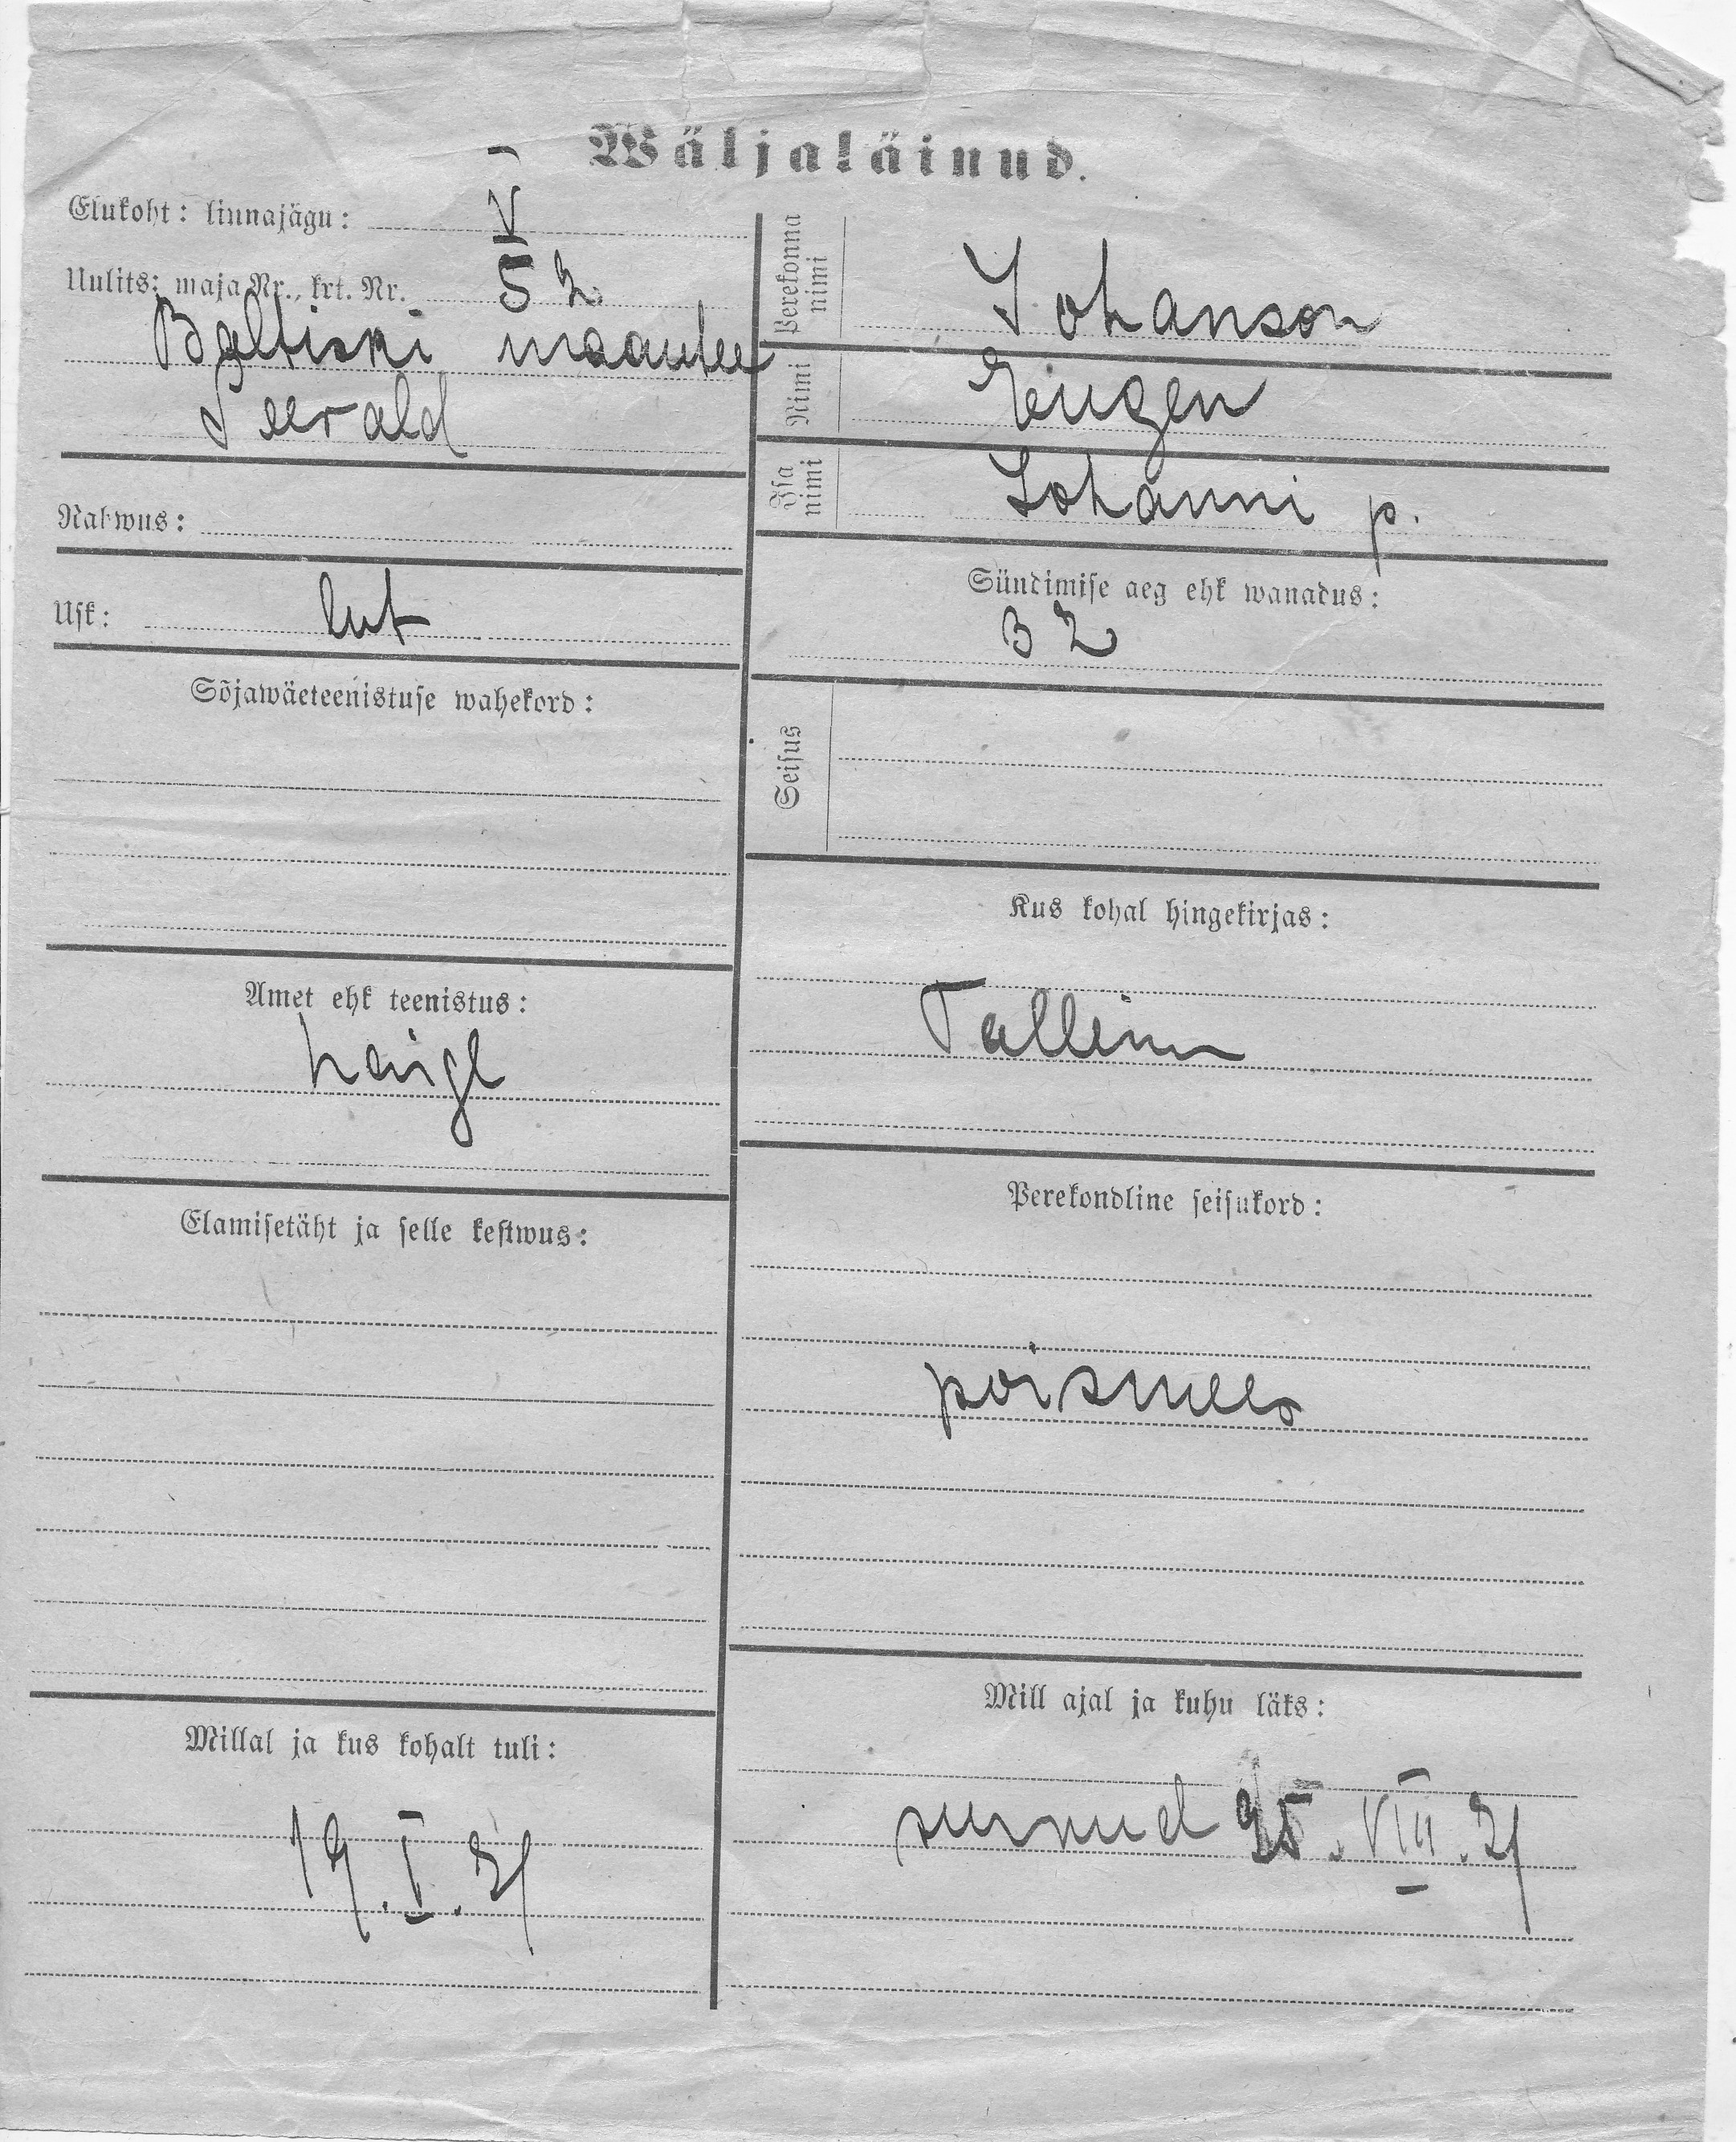 Wäljaläinud.
Elukoht: linnajägu: V
Uulits: maja Nr., krt. Nr. 52
Baltiski maantee
Seevald
Rahwus:
Usk: lut
Sõjawäeteenistuse wahekord:
Amet ehk teenistus:
haige
Elamisetäht ja selle kestwus:
Millal ja kus kohalt tuli:
19. I. 21
Perekonna nimi Johanson
Nimi Eugen
Isa nimi Johanni p.
Sündimise aeg ehk wanadus:
32
Seisus
Kus kohal hingekirjas:
Tallinn
Perekondline seisukord:
poismees
Mill ajal ja kuhu läks:
surnud 25. VIII. 21